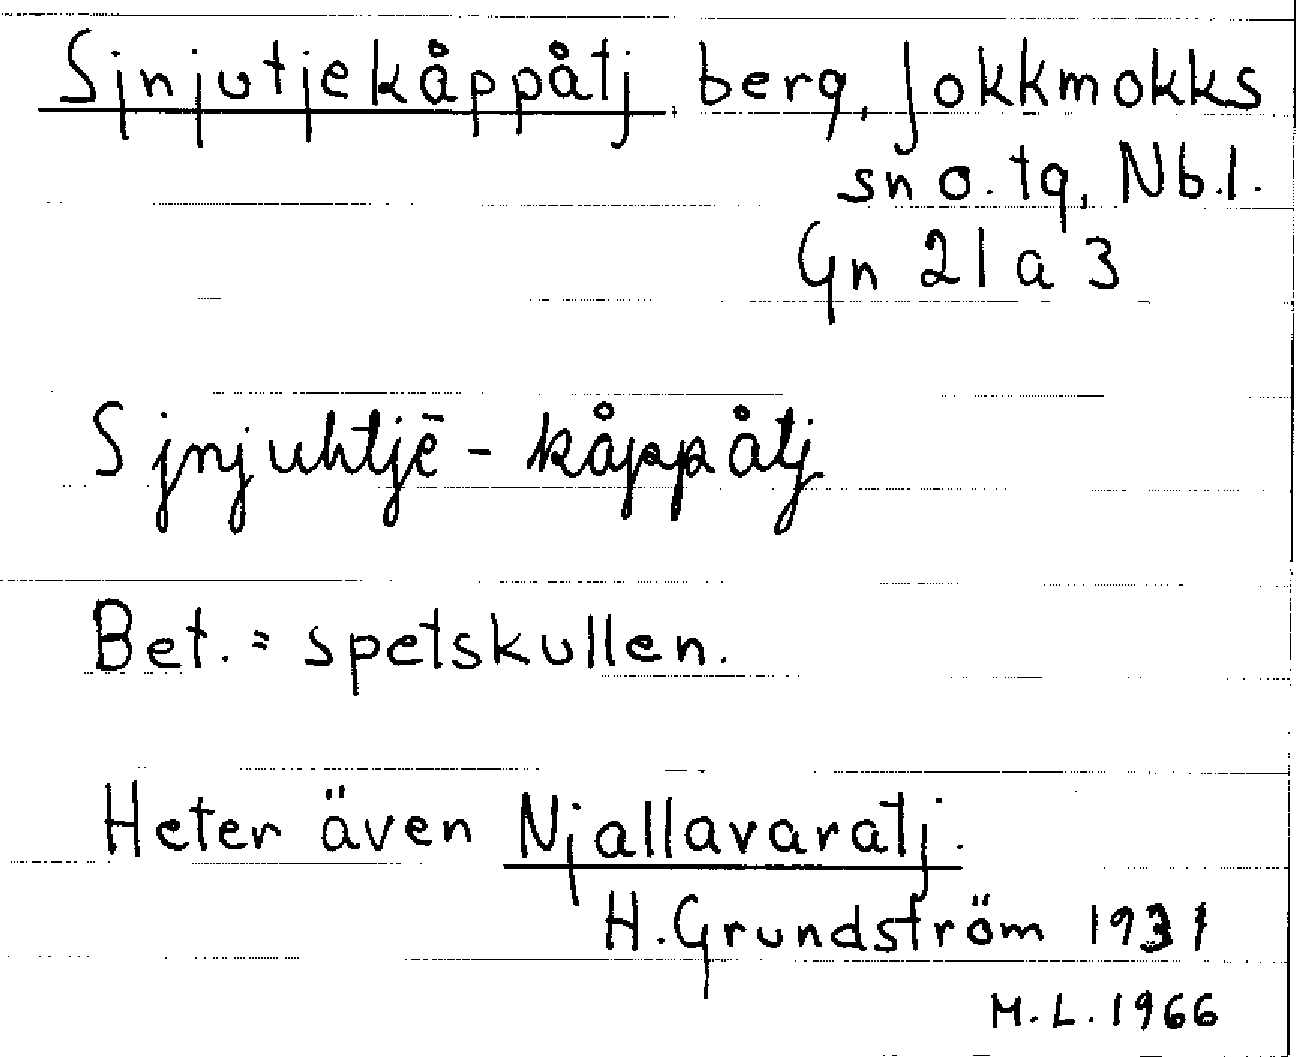 Sjnjutjekåppåtj, berg, Jokkmokks
sn o. tg, Nb.l.
Gn 21 a 3
Sjnjuhtjē - kåppåtj
Bet. = spetskullen.
Heter även Njallavaratj.
H. Grundström 1931
M.L. 1966